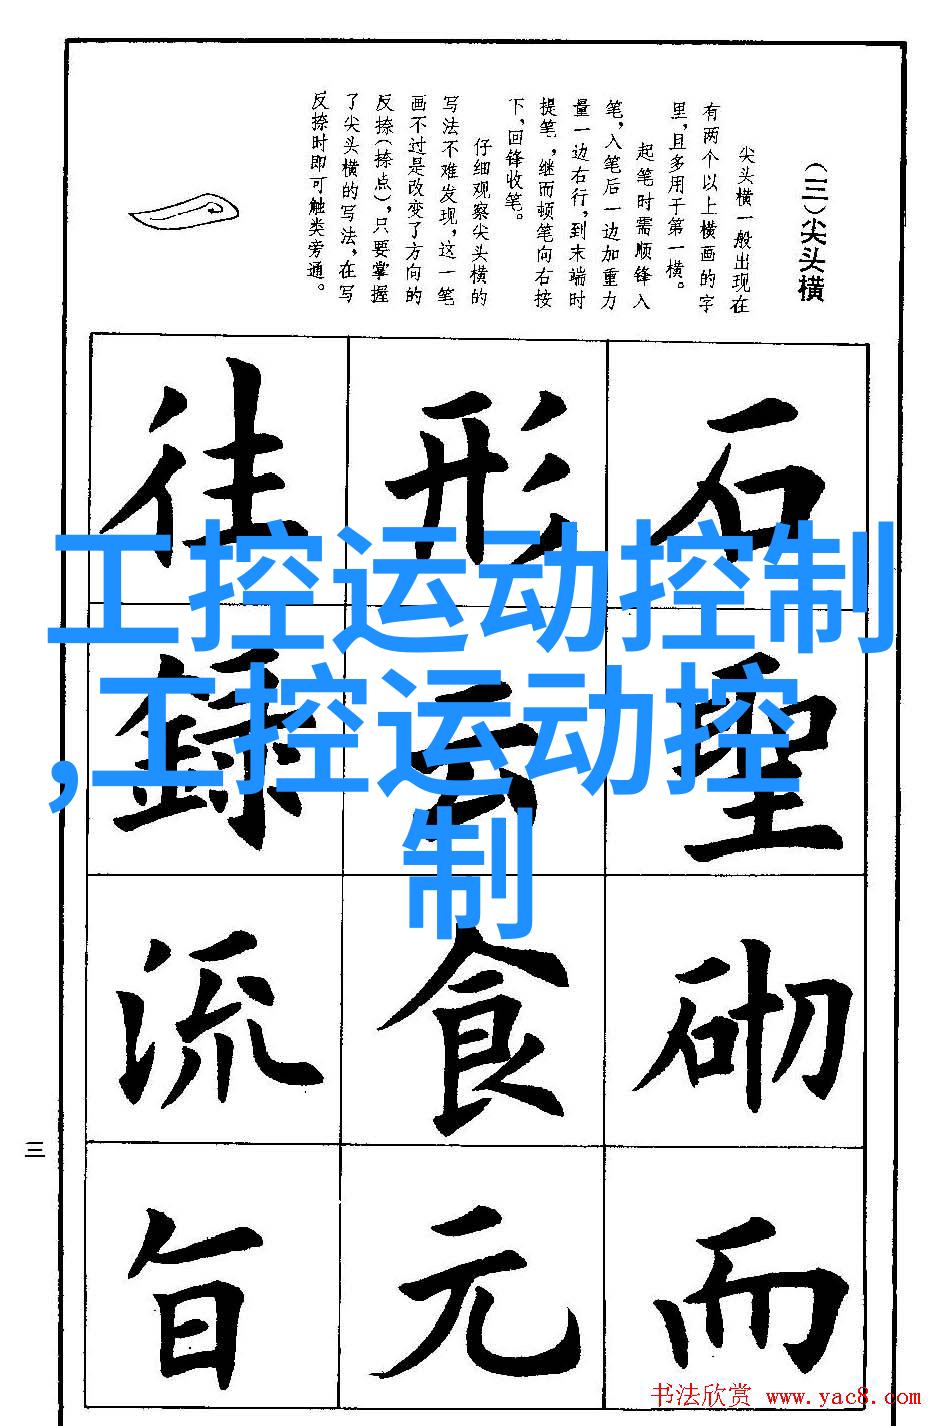 (三)尖头横
尖头横一般出现在
有两个以上横画的字
里,且多用于第一横。
起笔时需顺锋入
笔,入笔后一边加重力
量一边右行,到末端时
提笔,继而顿笔向右按
下,回锋收笔。
仔细观察尖头横的
写法不难发现,这一笔
画不过是改变了方向的
反捺(捺点),只要掌握
了尖头横的写法,在写
反捺时即可触类旁通。
石形往
工控运动控制
,工控运动控
制
圣云録
砌食流
而元旨
三
书法欣赏 www.yac8.com